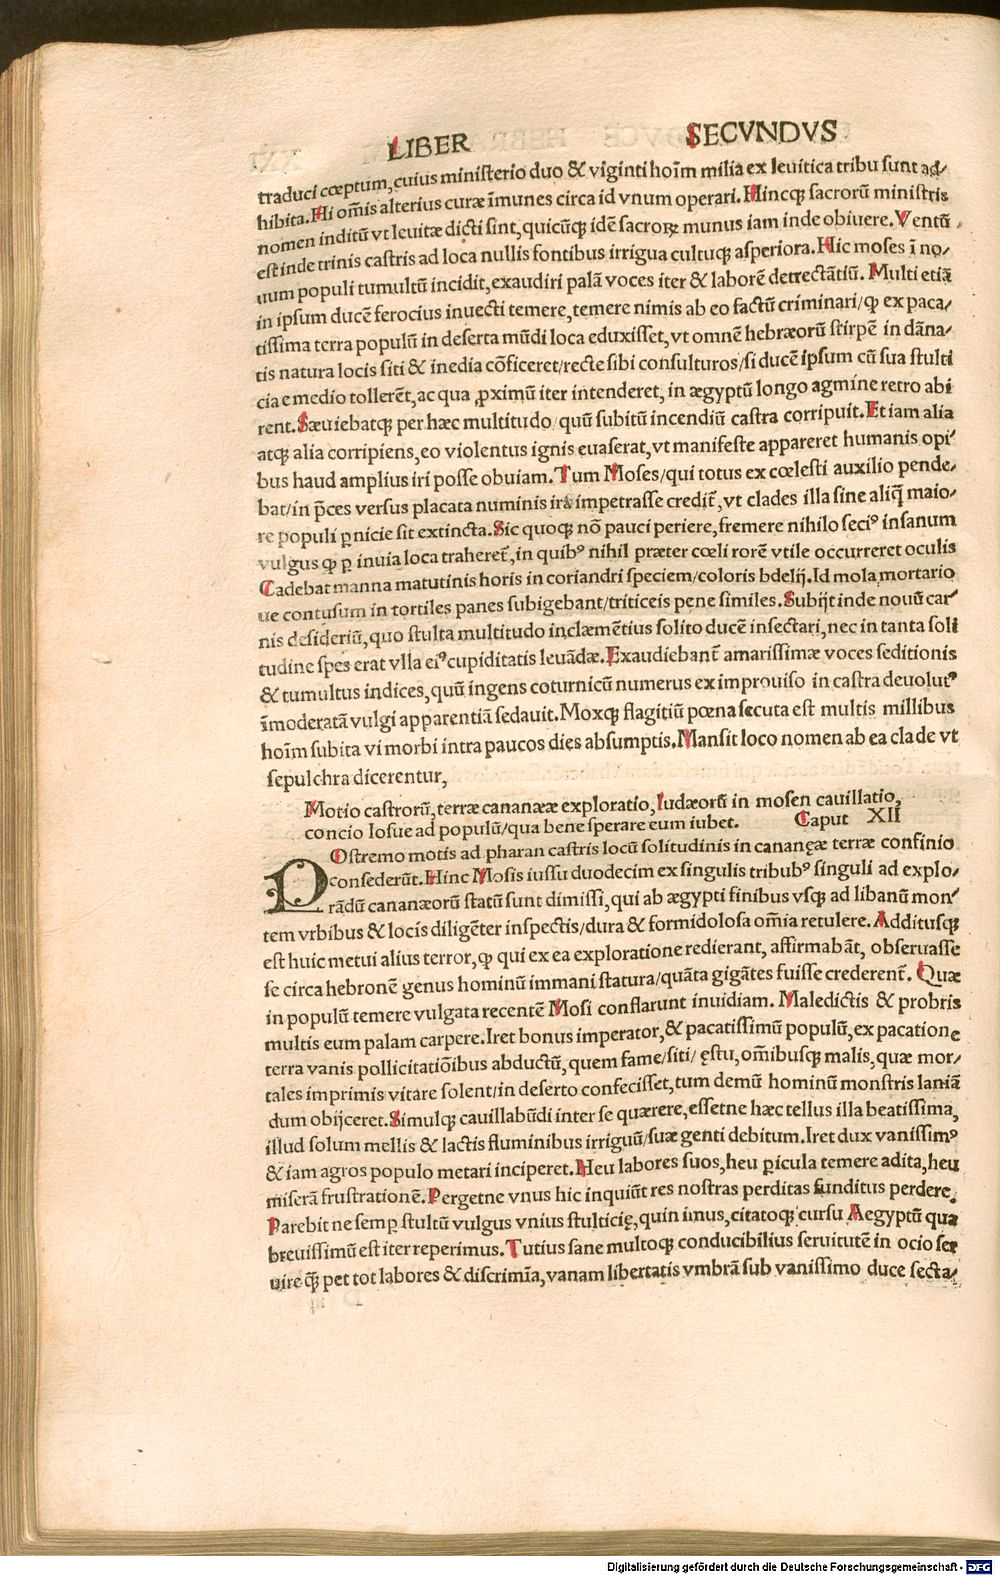 LIBER SECVNDVS
traduci cœptum, cuius ministerio duo & viginti hoīm milia ex leuitica tribu sunt ad-
hibita. Hi om̄is alterius curæ īmunes circa id vnum operari. Hincq; sacrorū ministris
nomen inditū vt leuitæ dicti sint, quicūq; idē sacroꝝ munus iam inde obiuere. Ventū
est inde trinis castris ad loca nullis fontibus irrigua cultuq; asperiora. Hic moses ī no/
uum populi tumultū incidit, exaudiri palā voces iter & laborē detrectātiū. Multi etiā
in ipsum ducē ferocius inuecti temere, temere nimis ab eo factū criminari/ ꝙ ex paca/
tissima terra populū in deserta mūdi loca eduxisset, vt omnē hebræorū stirpē in dāna/
tis natura locis siti & inedia cōficeret/ recte sibi consulturos/ si ducē ipsum cū sua stulti
cia e medio tollerēt, ac qua ꝓximū iter intenderet, in ægyptū longo agmine retro abi
rent. Sæuiebatq; per hæc multitudo/ quū subitū incendiū castra corripuit. Et iam alia
atq; alia corripiens, eo violentus ignis euaserat, vt manifeste appareret humanis opi/
bus haud amplius iri posse obuiam. Tum Moses/ qui totus ex cœlesti auxilio pende/
bat/ in p̄ces versus placata numinis ira impetrasse credit̄, vt clades illa sine aliq̄ maio/
re populi ꝑnicie sit extincta. Sic quoq; nō pauci periere, fremere nihilo seciꝰ insanum
vulgus ꝙ ꝑ inuia loca traheret̄, in quibꝰ nihil præter cœli rorē vtile occurreret oculis
Cadebat manna matutinis horis in coriandri speciem/ coloris bdelij. Id mola, mortario
ue contusum in tortiles panes subigebant/ triticeis pene similes. Subijt inde nouū car/
nis desideriū, quo stulta multitudo inclæmētius solito ducē insectari, nec in tanta soli
tudine spes erat vlla eiꝰ cupiditatis leuādæ. Exaudiebant̄ amarissimæ voces seditionis
& tumultus indices, quū ingens coturnicū numerus ex improuiso in castra deuolutꝰ
īmoderatā vulgi apparentiā sedauit. Moxq; flagitiū pœna secuta est multis millibus
hoīm subita vi morbi intra paucos dies absumptis. Mansit loco nomen ab ea clade vt
sepulchra dicerentur,
Motio castrorū, terræ cananææ exploratio, Iudæorū in mosen cauillatio,
concio Iosue ad populū/ qua bene sperare eum iubet. Caput XII
POstremo motis ad pharan castris locū solitudinis in cananęæ terræ confinio
consederūt. Hinc Mosis iussu duodecim ex singulis tribubꝰ singuli ad explo/
rādū cananæorū statū sunt dimissi, qui ab ægypti finibus vsq; ad libanū mon/
tem vrbibus & locis diligēter inspectis/ dura & formidolosa om̄ia retulere. Additusq;
est huic metui alius terror, ꝙ qui ex ea exploratione redierant, affirmabāt, obseruasse
se circa hebronē genus hominū immani statura/ quāta gigātes fuisse crederent̄. Quæ
in populū temere vulgata recentē Mosi conflarunt inuidiam. Maledictis & probris
multis eum palam carpere. Iret bonus imperator, & pacatissimū populū, ex pacatione
terra vanis pollicitatiōibus abductū, quem fame/ siti/ ęstu, om̄ibusq; malis, quæ mor/
tales imprimis vitare solent/ in deserto confecisset, tum demū hominū monstris laniā
dum obijceret. Simulq; cauillabūdi inter se quærere, essetne hæc tellus illa beatissima,
illud solum mellis & lactis fluminibus irriguū/ suæ genti debitum. Iret dux vanissimꝰ
& iam agros populo metari inciperet. Heu labores suos, heu ꝑicula temere adita, heu
miserā frustrationē. Pergetne vnus hic inquiūt res nostras perditas funditus perdere.
Parebit ne semꝑ stultū vulgus vnius stulticię, quin imus, citatoq; cursu Aegyptū qua
breuissimū est iter reperimus. Tutius sane multoq; conducibilius seruitutē in ocio ser
uire q̄ȝ pet tot labores & discrimīa, vanam libertatis vmbrā sub vanissimo duce secta/
Digitalisierung gefördert durch die Deutsche Forschungsgemeinschaft - DFG